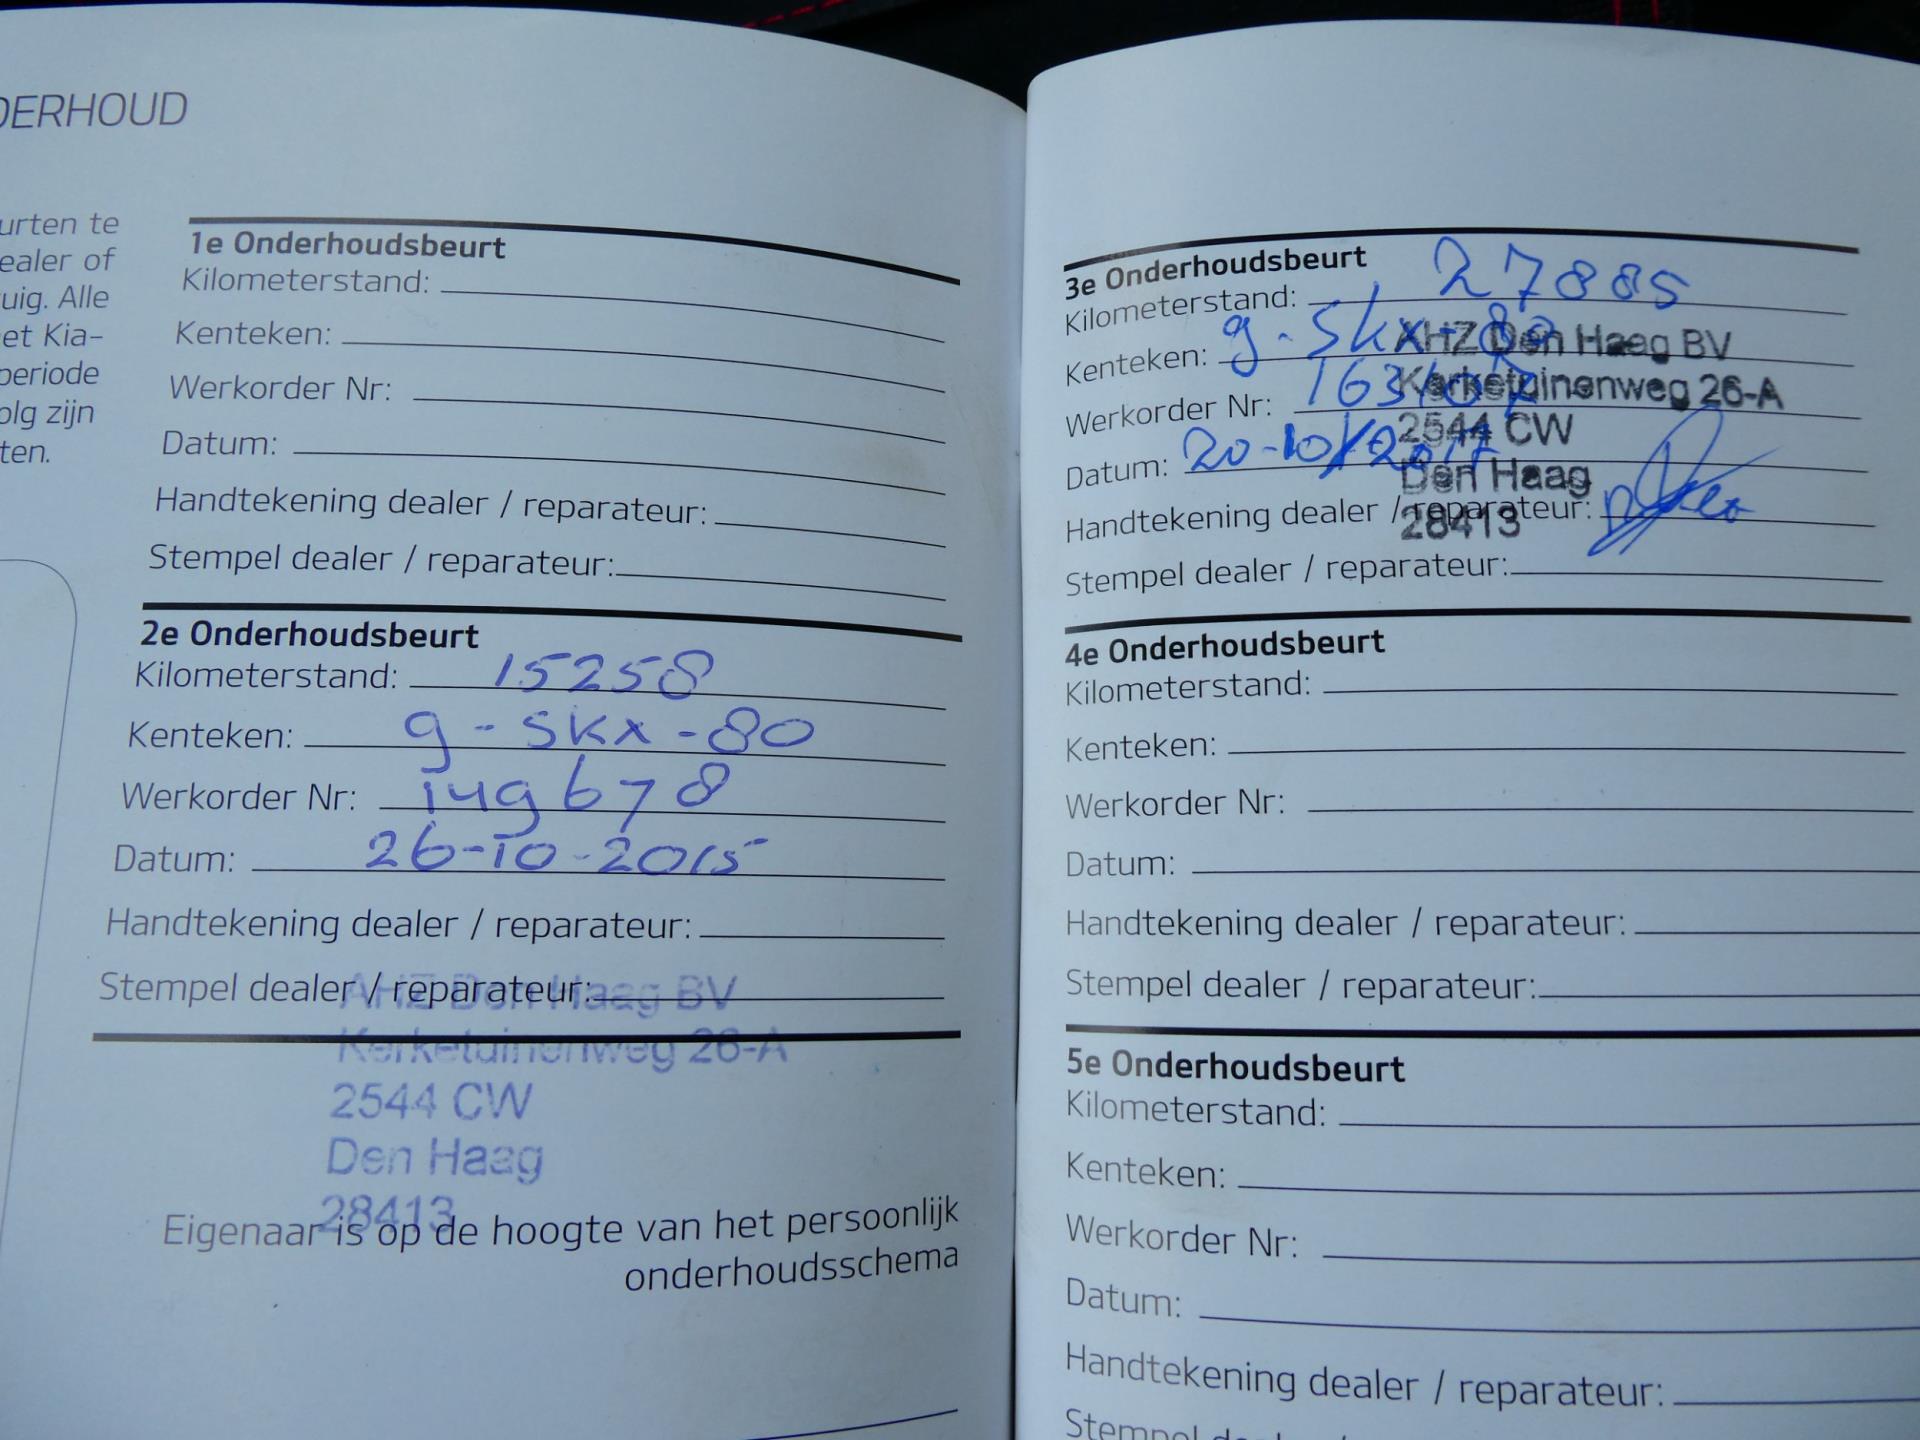 DERHOUD
urten te
ealer of
uig. Alle
et Kia-
periode
olg zijn
ten.
1e Onderhoudsbeurt
Kilometerstand:
Kenteken:
Werkorder Nr:
Datum:
Handtekening dealer / reparateur:
Stempel dealer / reparateur:
2e Onderhoudsbeurt
Kilometerstand: 15258
Kenteken: g-skx-80
Werkorder Nr: 149678
Datum: 26-10-2015
Handtekening dealer / reparateur:
Stempel dealer / reparateur:
AHZ Den Haag BV
Kerketuinenweg 26-A
2544 CW
Den Haag
28413
Eigenaar is op de hoogte van het persoonlijk
onderhoudsschema
3e Onderhoudsbeurt
Kilometerstand: 27885
Kenteken: g-skx-80
Werkorder Nr:
Datum: 20-10-2017
Handtekening dealer / reparateur:
Stempel dealer / reparateur:
AHZ Den Haag BV
Kerketuinenweg 26-A
2544 CW
Den Haag
28413
4e Onderhoudsbeurt
Kilometerstand:
Kenteken:
Werkorder Nr:
Datum:
Handtekening dealer / reparateur:
Stempel dealer / reparateur:
5e Onderhoudsbeurt
Kilometerstand:
Kenteken:
Werkorder Nr:
Datum:
Handtekening dealer / reparateur:
Stempel dealer / reparateur: